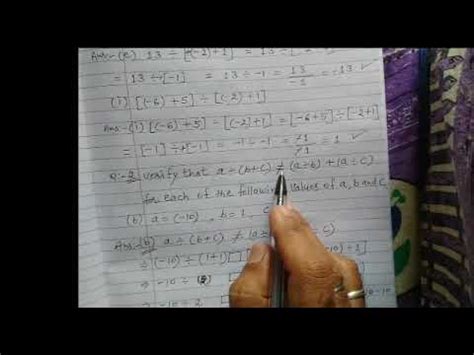 Ans:-(e) 13 ÷ [(-2)+1] = 13 ÷ [-2+1]
= 13 ÷ [-1] = 13 ÷ -1 = 13/-1 = -13 ✓
(f) [(-6)+5] ÷ [(-2)+1]
Ans-(f) [(-6)+5] ÷ [(-2)+1] = [-6+5] ÷ [-2+1]
= [-1] ÷ [-1] = -1 ÷ -1 = -1/-1 = 1 ✓
Q:-2 verify that a ÷ (b+c) ≠ (a÷b) + (a÷c)
for each of the following values of a, b and c,
(b) a = (-10), b = 1, c
Ans:-(b) a ÷ (b+c) ≠ (a÷ c)
⇒ (-10) ÷ (1+1) [ -10) ÷ 1]
⇒ -10 ÷
⇒ -10 ÷ 2 -10-10